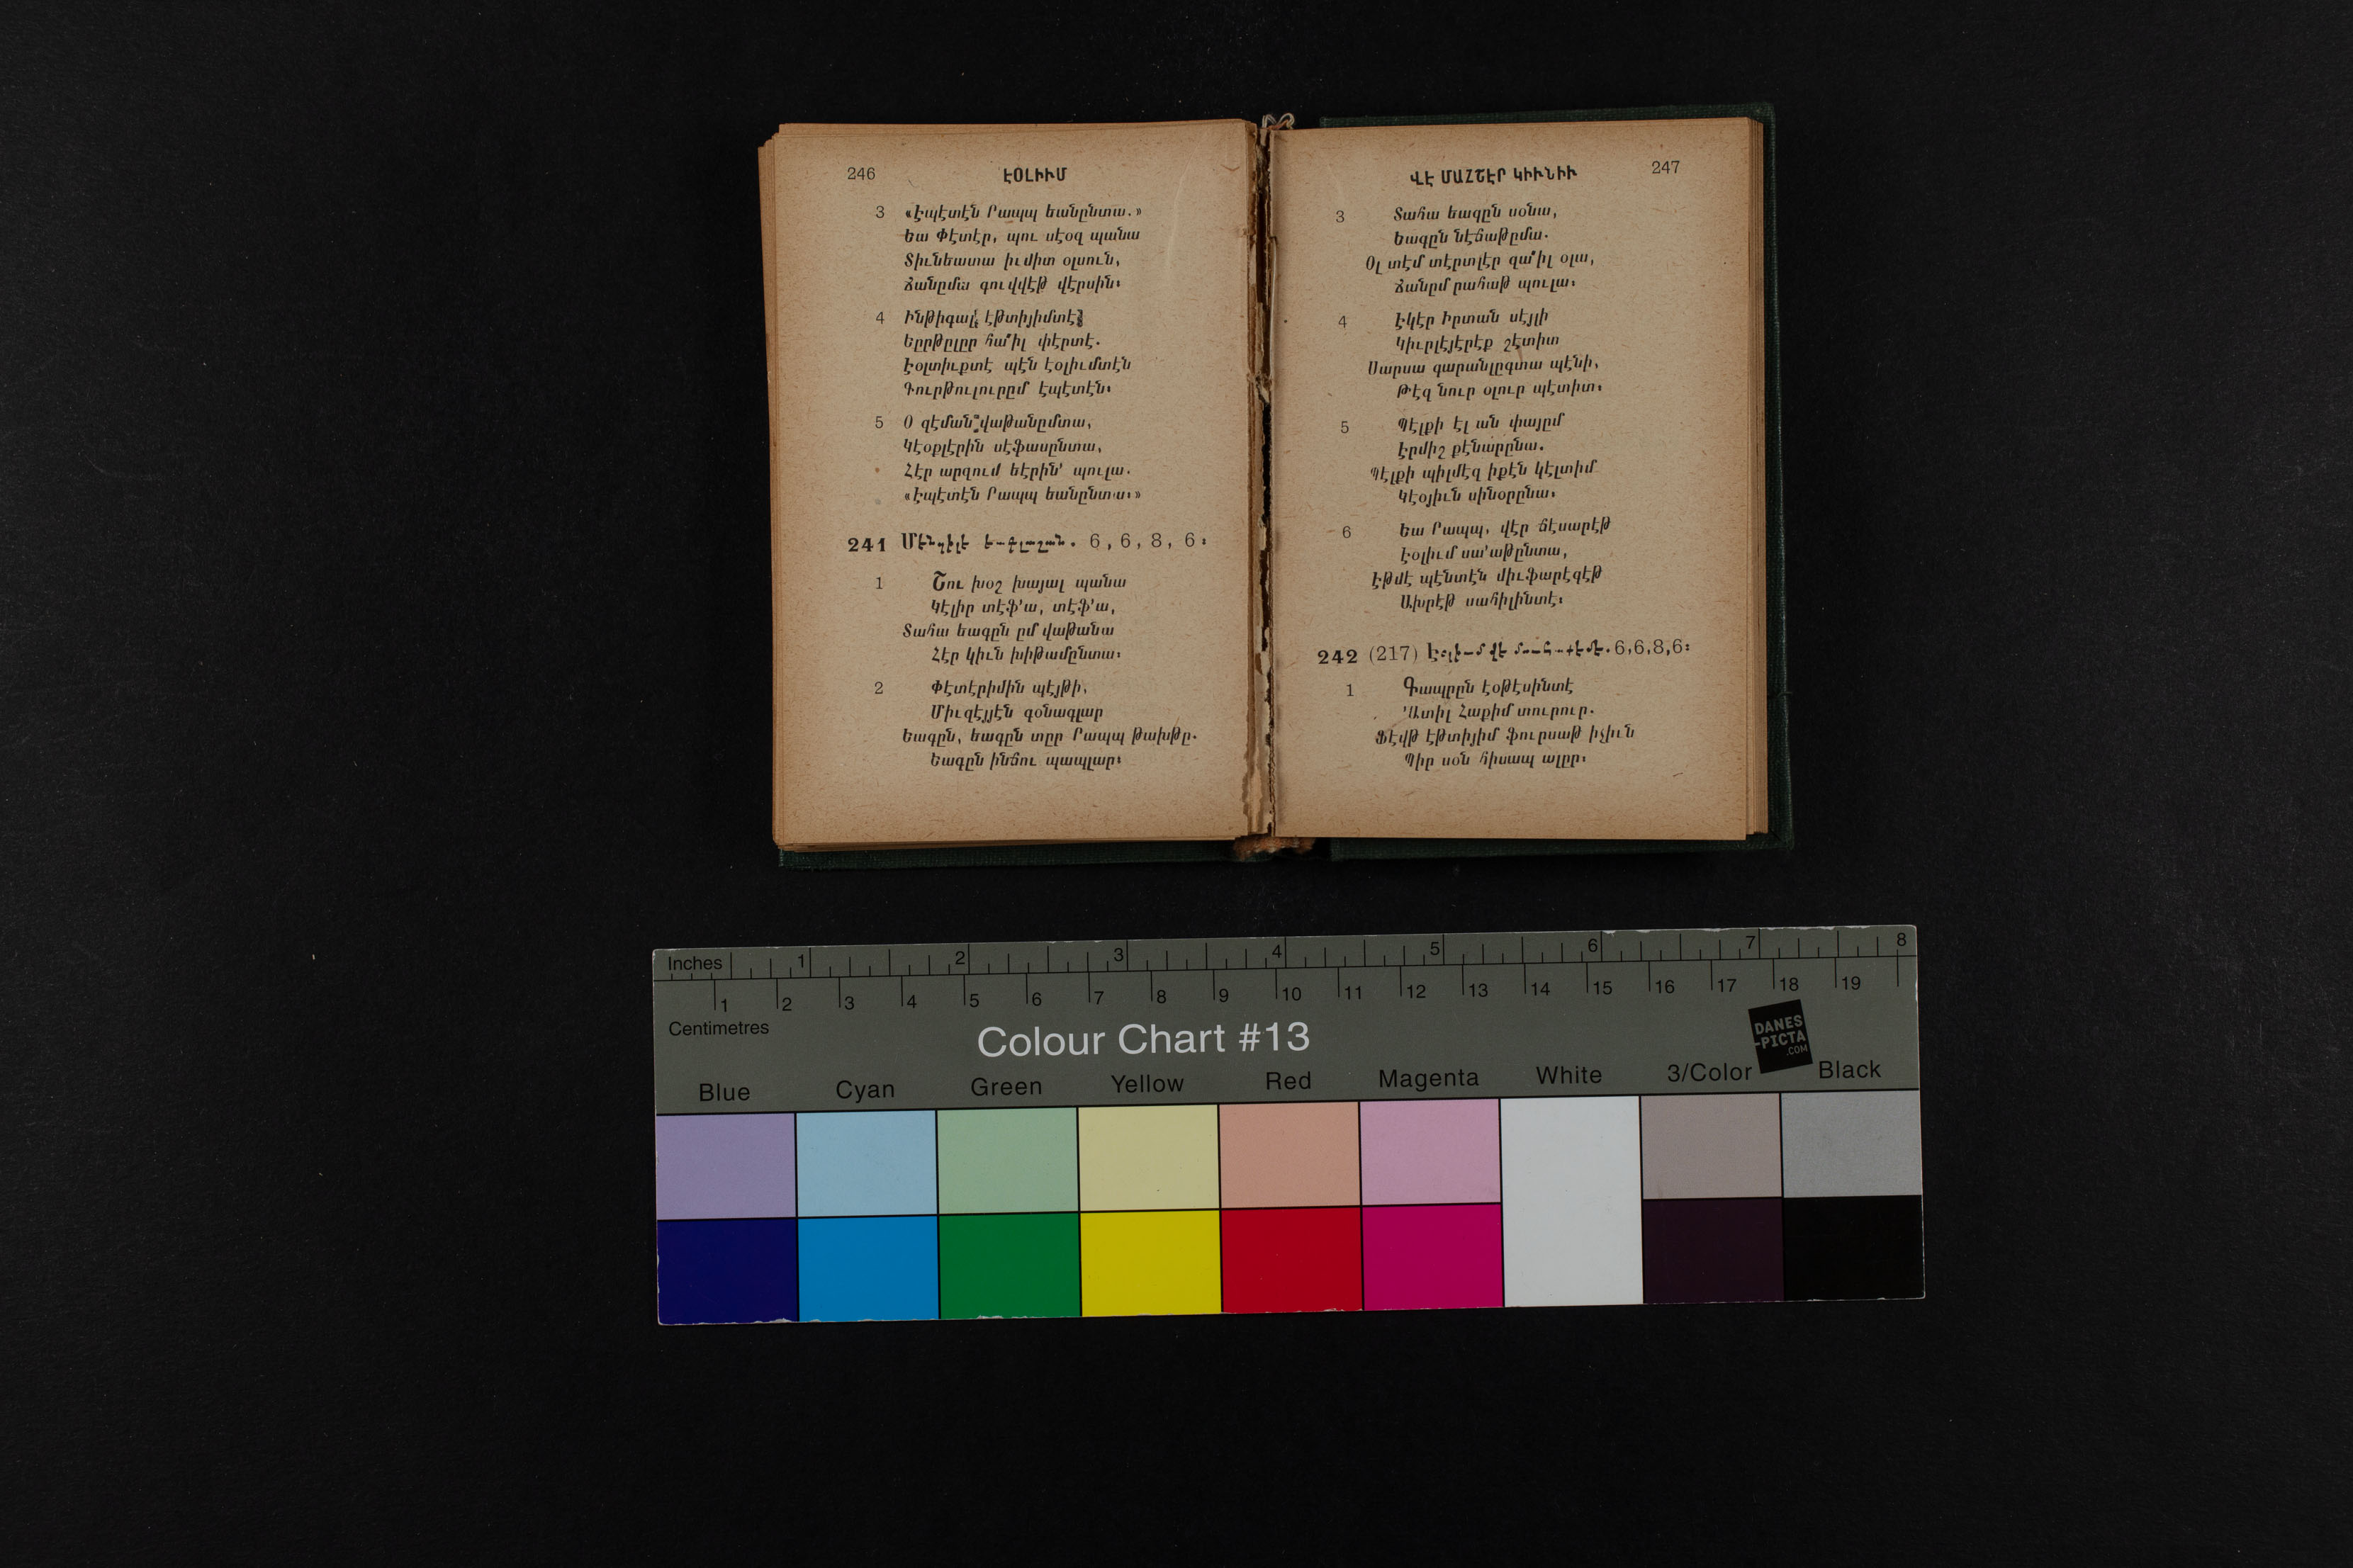 246 ԷՕԼԻՒՄ
3 «Էպէտէն Րապպ եանընտա.»
Եա Փէտէր, պու սէօզ պանա
Տիւնեատա իւմիտ օլսուն,
Ճանըմա գուվվէթ վէրսին։
4 Ինթիգալ էթտիյիմտէ
Եըրթըլըր հա՛իլ փէրտէ.
Էօլտիւքտէ պէն էօլիւմտէն
Գուրթուլուրըմ էպէտէն։
5 Օ զէման վաթանըմտա,
Կէօքլէրին սէֆասընտա,
Հէր արզում եէրին՝ պուլա.
«Էպէտէն Րապպ եանընտա։»
241 Մէնզիլէ եագլաշան. 6, 6, 8, 6։
1 Շու խօշ խայալ պանա
Կէլիր տէֆ՚ա, տէֆ՚ա,
Տահա եագըն ըմ վաթանա
Հէր կիւն խիթամընտա։
2 Փէտէրիմին պէյթի,
Միւզէյյէն գօնագլար
Եագըն, եագըն տըր Րապպ թախթը.
Եագըն ինճու պապլար։
ՎԷ ՄԱՀՇԷՐ ԿԻՒՆԻՒ 247
3 Տահա եագըն սօնա,
Եագըն նէճաթըմա.
Օլ տէմ տէրտլէր զա՛իլ օլա,
Ճանըմ րահաթ պուլա։
4 Էկէր Իրտան սէյլի
Կիւրլէյէրէք շէտիտ
Սարսա գարանլըգտա պէնի,
Թէզ նուր օլուր պէտիտ։
5 Պէլքի էլ ան փայըմ
Էրմիշ քէնարընա.
Պէլքի պիլմէզ իքէն կէլտիմ
Կէօյիւն սինօրընա։
6 Եա Րապպ, վէր ճէսարէթ
Էօլիւմ սա՛աթընտա,
Էթմէ պէնտէն միւֆարէզէթ
Ախրէթ սահիլինտէ։
242 (217) Էօլիւմ վէ մահքէմէ. 6,6,8,6։
1 Գապրըն էօթէսինտէ
՚Ատիլ Հաքիմ տուրուր.
Ֆէվթ էթտիյիմ ֆուրսաթ իչիւն
Պիր սօն հիսապ ալըր։
Inches 1 2 3 4 5 6 7 8
1 2 3 4 5 6 7 8 9 10 11 12 13 14 15 16 17 18 19
Centimetres
Colour Chart #13
DANES
-PICTA
.COM
Blue Cyan Green Yellow Red Magenta White 3/Color Black